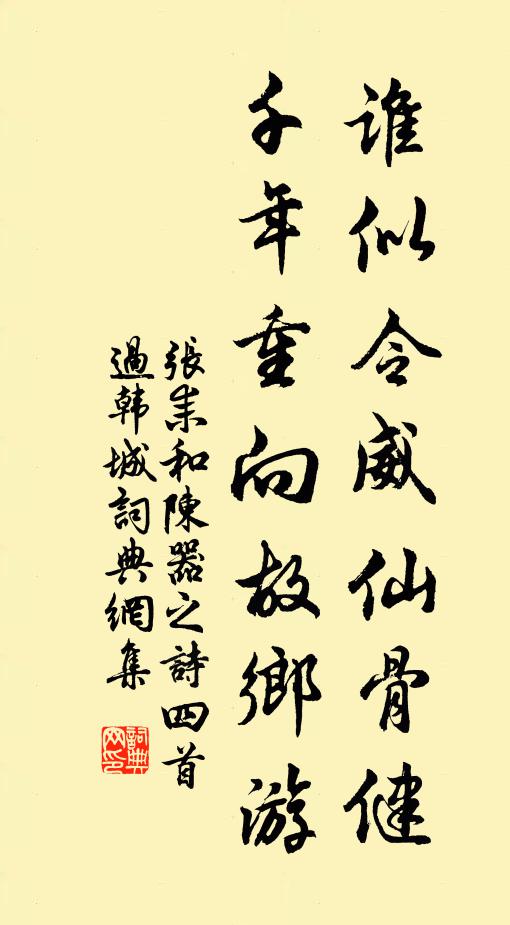 誰似令威仙骨健
千年重向故鄉游
張耒和陳器之詩四首
過韩城詞典網集
詞典网印